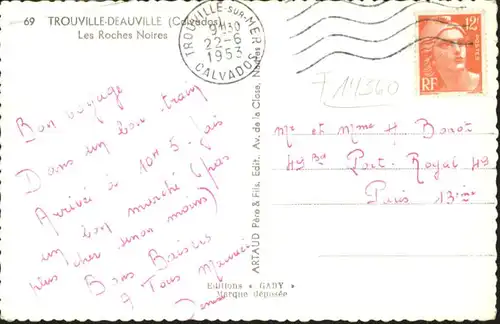 69 TROUVILLE-DEAUVILLE (Calvados)
Les Roches Noires
TROUVILLE-SUR-MER
9H30
22-6
1953
CALVADOS
12F
POSTES
RF
F 14360
Bon voyage
Dans un bon train
Arrivée à 10H 5. fais
un bon marché (pas
plus cher sinon moins)
Bons Baisers
à Tous Maurice
ARTAUD Père & Fils, Edit. Av. de la Close, Nantes
Mr et Mme H. Bonot
49 Bd Port-Royal 49
Paris 13e
Editions « GABY »
Marque déposée